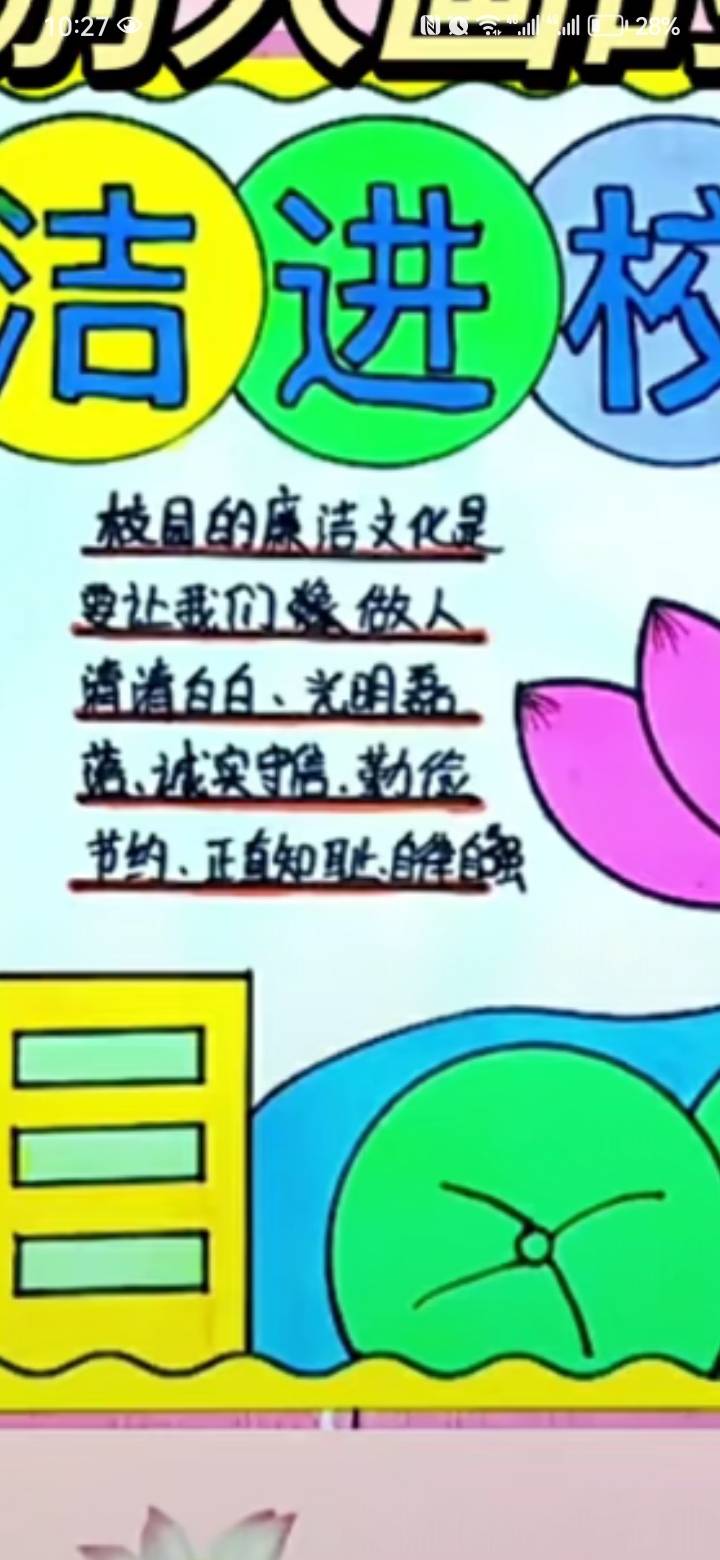 10:27 28%
别人画的
洁进校
校园的廉洁文化是
要让我们 做人
清清白白、光明磊
落、诚实守信、勤俭
节约、正直知耻、自律自强